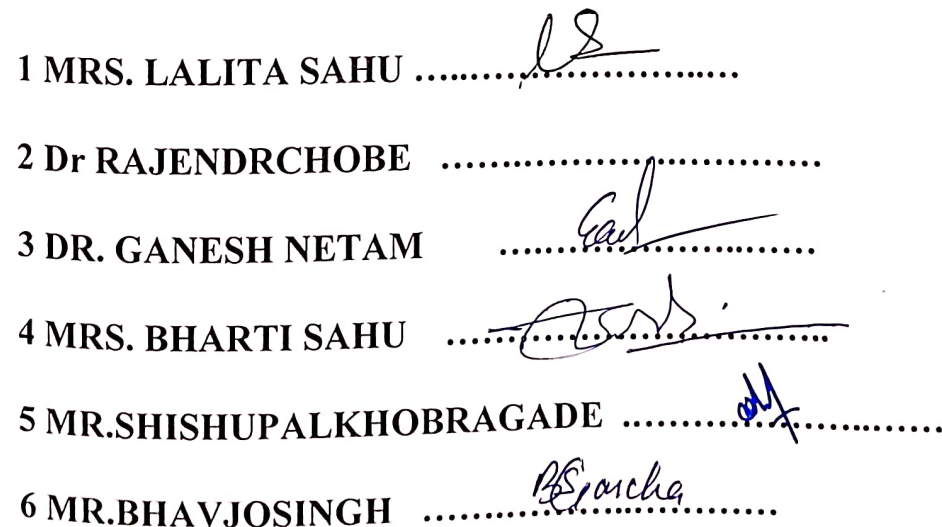 1 MRS. LALITA SAHU ..............................
2 Dr RAJENDRCHOBE ..................................
3 DR. GANESH NETAM ............................
4 MRS. BHARTI SAHU ..................................
5 MR.SHISHUPALKHOBRAGADE .............................
6 MR.BHAVJOSINGH ...............................